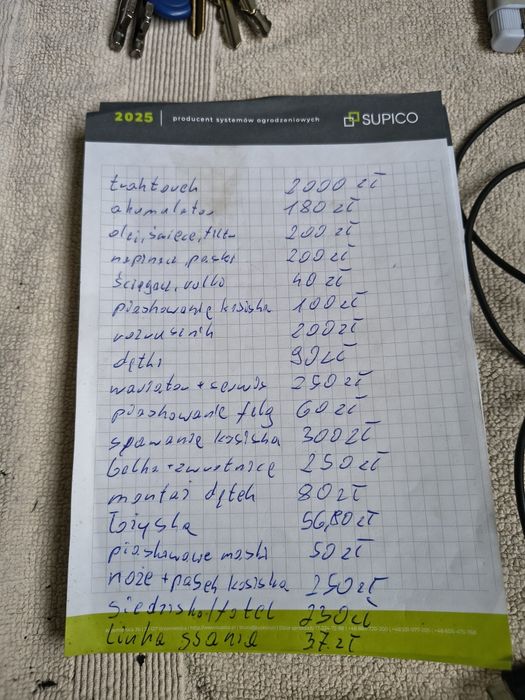 2025 | producent systemów ogrodzeniowych SUPICO
traktorek 2000 zł
akumulator 180 zł
olej, świece, filtr 200 zł
napinacz, paski 200 zł
ściągacz, 40 zł
piaskowanie kosiska 100 zł
rozrusznik 200 zł
dętki 90 zł
wariator + serwis 250 zł
piaskowanie felg 60 zł
spawanie kosiska 300 zł
belka + zwrotnice 250 zł
montaż dętek 80 zł
łożyska 56,80 zł
piaskowanie maski 50 zł
noże + pasek kosiska 250 zł
siedzisko/fotel 230 zł
linka ssania 37 zł